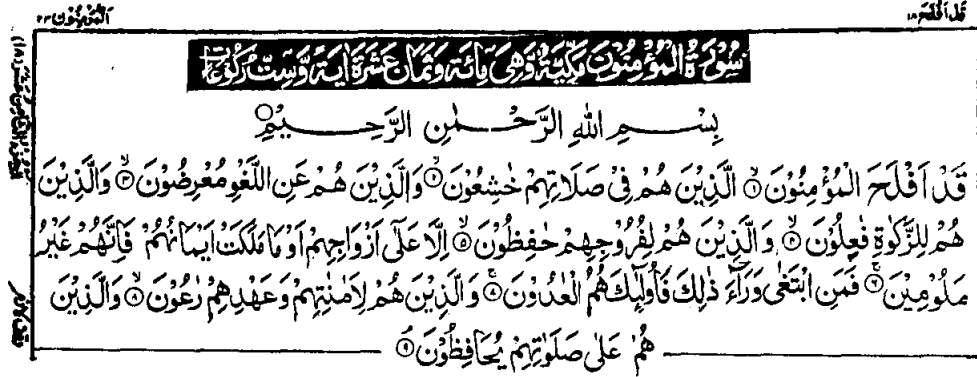 قَدْ اَفْلَحَ ۱۸
اَلْمُؤْمِنُوْنَ ۲۳
سُوْرَةُ الْمُؤْمِنُوْنَ مَكِّيَّةٌ وَّهِیَ مِائَةٌ وَّثَمَانَ عَشَرَةَ اٰيَةً وَّسِتُّ رُكُوْعَاتٍ
بِسْمِ اللهِ الرَّحْمٰنِ الرَّحِيْمِ
قَدْ اَفْلَحَ الْمُؤْمِنُوْنَ ۱ الَّذِيْنَ هُمْ فِیْ صَلَاتِهِمْ خٰشِعُوْنَ ۲ وَالَّذِيْنَ هُمْ عَنِ اللَّغْوِ مُعْرِضُوْنَ ۳ وَالَّذِيْنَ
هُمْ لِلزَّكٰوةِ فٰعِلُوْنَ ۴ وَالَّذِيْنَ هُمْ لِفُرُوْجِهِمْ حٰفِظُوْنَ ۵ اِلَّا عَلٰۤی اَزْوَاجِهِمْ اَوْ مَا مَلَكَتْ اَيْمَانُهُمْ فَاِنَّهُمْ غَيْرُ
مَلُوْمِيْنَ ۶ فَمَنِ ابْتَغٰی وَرَآءَ ذٰلِكَ فَاُولٰٓئِكَ هُمُ الْعٰدُوْنَ ۸ وَالَّذِيْنَ هُمْ لِاَمٰنٰتِهِمْ وَعَهْدِهِمْ رٰعُوْنَ ۸ وَالَّذِيْنَ
هُمْ عَلٰی صَلَوٰتِهِمْ يُحَافِظُوْنَ ۹